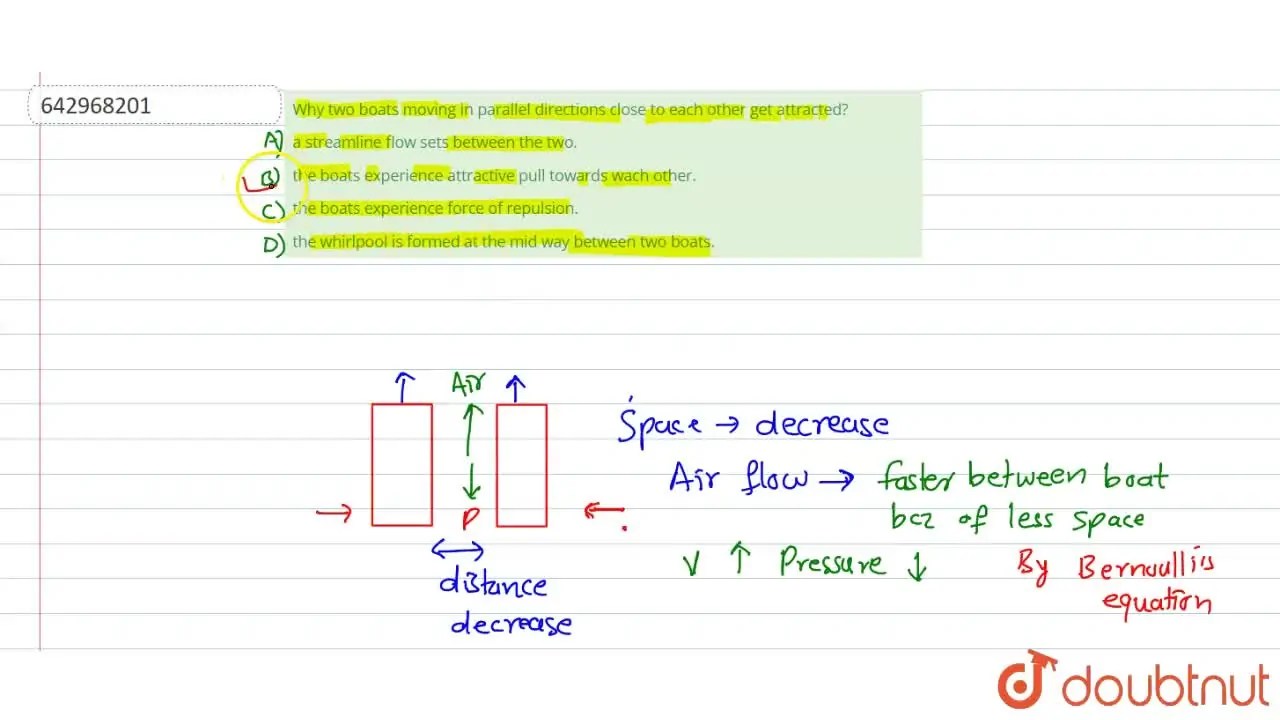 642968201
Why two boats moving in parallel directions close to each other get attracted?
A) a streamline flow sets between the two.
B) the boats experience attractive pull towards wach other.
C) the boats experience force of repulsion.
D) the whirlpool is formed at the mid way between two boats.
Air
P
distance
decrease
Space → decrease
Air flow → faster between boat
bcz of less space
V ↑ Pressure ↓
By Bernoullis
equation
doubtnut